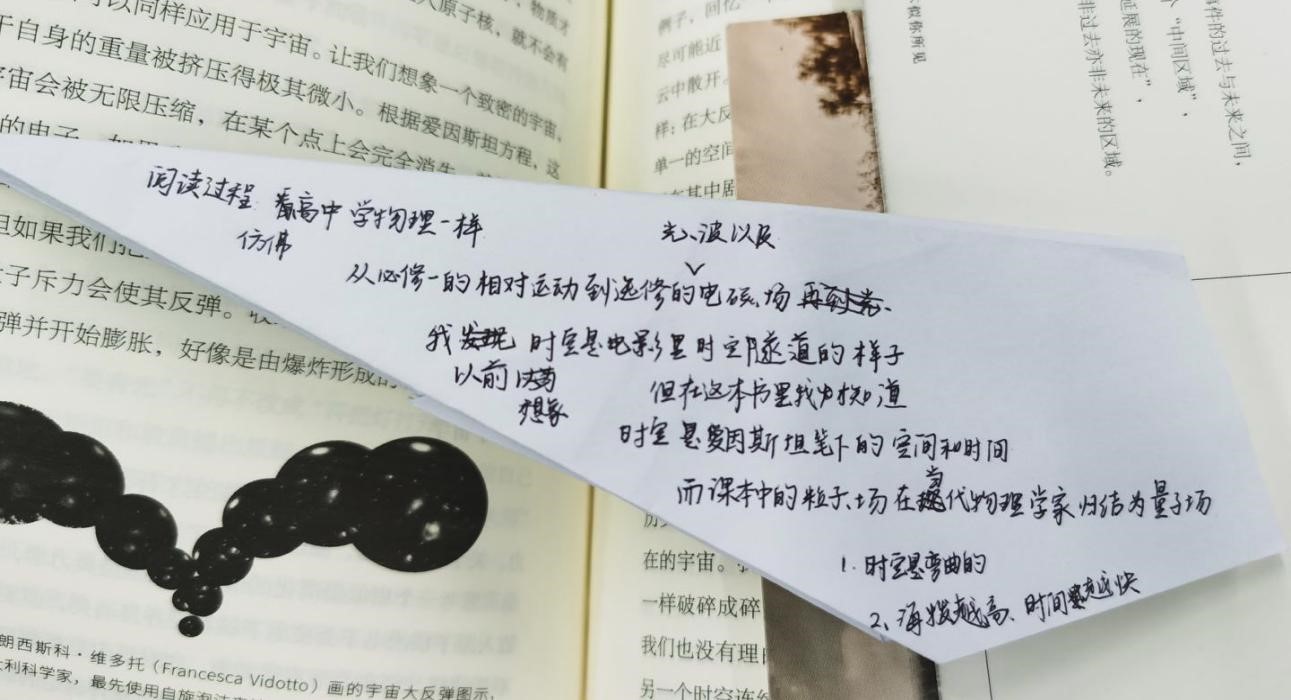 可以同样应用于宇宙。让我们想象一个致密的宇宙,
于自身的重量被挤压得极其微小。根据爱因斯坦方程,这
宇宙会被无限压缩,在某个点上会完全消失
的电子
但如果我们把
子斥力会使其反弹。
弹并开始膨胀,好像是由爆炸形成的
朗西斯科·维多托(Francesca Vidotto)画的宇宙大反弹图示,
大利科学家,最先使用自旋泡沫
入原子核,就不会有
物质才
例子,回忆
尽可能近
云中散开。
样:在大反
单一的空间
在其中
阅读过程 看高中学物理一样
仿佛
光、波以及
从必修一的相对运动到选修的电磁场再到光、
我发现 时空是电影里时空隧道的样子
以前 以为
想象
但在这本书里我才知道
时空是爱因斯坦笔下的空间和时间
而课本中的粒子、场在当代物理学家归结为量子场
1. 时空是弯曲的
2. 海拔越高、时间越快
在的宇宙。
一样破碎成碎
我们也没有理由
另一个时空连续
你所见
事件的过去与未来之间,
个“中间区域”,
延展的现在”,
非过去亦非未来的区域。